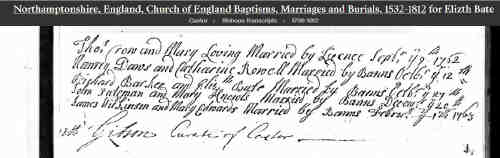 Northamptonshire, England, Church of England Baptisms, Marriages and Burials, 1532-1812 for Elizth Bate
Castor › Bishops Transcripts › 1706-1812
Thos Crow and Mary Loving Married by Licence Septr ye 9th 1762
Henry Daws and Catharine Rowell Married by Banns Octbr ye 12th
Richard Barker and Elizth Bate Married by Banns Octbr ye 27th
John and Mary Married by Banns Decemr ye 20th
James Wilkinson and Mary Edwards Married by Banns Febr ye 17th 1763
Gibson Curate of Castor